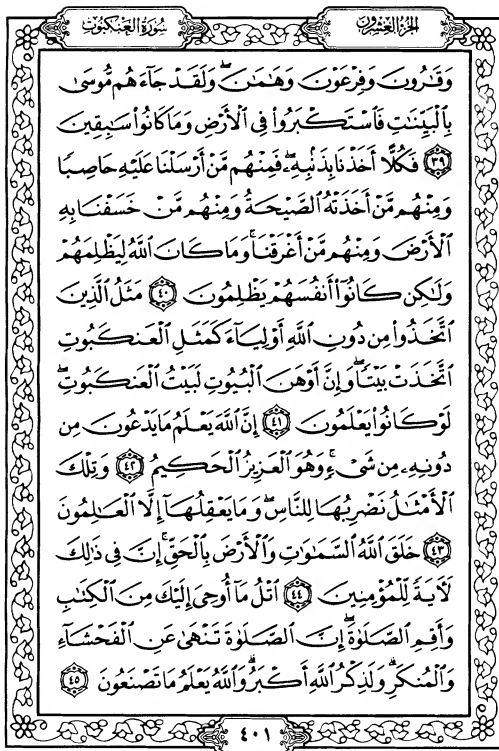 سُورَةُ العَنكَبُوت
الجُزءُ العِشرُون
وَقَٰرُونَ وَفِرْعَوْنَ وَهَٰمَٰنَ ۖ وَلَقَدْ جَآءَهُم مُّوسَىٰ
بِٱلْبَيِّنَٰتِ فَٱسْتَكْبَرُوا۟ فِى ٱلْأَرْضِ وَمَا كَانُوا۟ سَٰبِقِينَ
٣٩ فَكُلًّا أَخَذْنَا بِذَنۢبِهِۦ ۖ فَمِنْهُم مَّنْ أَرْسَلْنَا عَلَيْهِ حَاصِبًا
وَمِنْهُم مَّنْ أَخَذَتْهُ ٱلصَّيْحَةُ وَمِنْهُم مَّنْ خَسَفْنَا بِهِ
ٱلْأَرْضَ وَمِنْهُم مَّنْ أَغْرَقْنَا ۚ وَمَا كَانَ ٱللَّهُ لِيَظْلِمَهُمْ
وَلَٰكِن كَانُوٓا۟ أَنفُسَهُمْ يَظْلِمُونَ ٤٠ مَثَلُ ٱلَّذِينَ
ٱتَّخَذُوا۟ مِن دُونِ ٱللَّهِ أَوْلِيَآءَ كَمَثَلِ ٱلْعَنكَبُوتِ
ٱتَّخَذَتْ بَيْتًا ۖ وَإِنَّ أَوْهَنَ ٱلْبُيُوتِ لَبَيْتُ ٱلْعَنكَبُوتِ ۖ
لَوْ كَانُوا۟ يَعْلَمُونَ ٤١ إِنَّ ٱللَّهَ يَعْلَمُ مَا يَدْعُونَ مِن
دُونِهِۦ مِن شَىْءٍ ۚ وَهُوَ ٱلْعَزِيزُ ٱلْحَكِيمُ ٤٢ وَتِلْكَ
ٱلْأَمْثَٰلُ نَضْرِبُهَا لِلنَّاسِ ۖ وَمَا يَعْقِلُهَآ إِلَّا ٱلْعَٰلِمُونَ
٤٣ خَلَقَ ٱللَّهُ ٱلسَّمَٰوَٰتِ وَٱلْأَرْضَ بِٱلْحَقِّ ۚ إِنَّ فِى ذَٰلِكَ
لَءَايَةً لِّلْمُؤْمِنِينَ ٤٤ ٱتْلُ مَآ أُوحِىَ إِلَيْكَ مِنَ ٱلْكِتَٰبِ
وَأَقِمِ ٱلصَّلَوٰةَ ۖ إِنَّ ٱلصَّلَوٰةَ تَنْهَىٰ عَنِ ٱلْفَحْشَآءِ
وَٱلْمُنكَرِ ۗ وَلَذِكْرُ ٱللَّهِ أَكْبَرُ ۗ وَٱللَّهُ يَعْلَمُ مَا تَصْنَعُونَ ٤٥
٤٠١